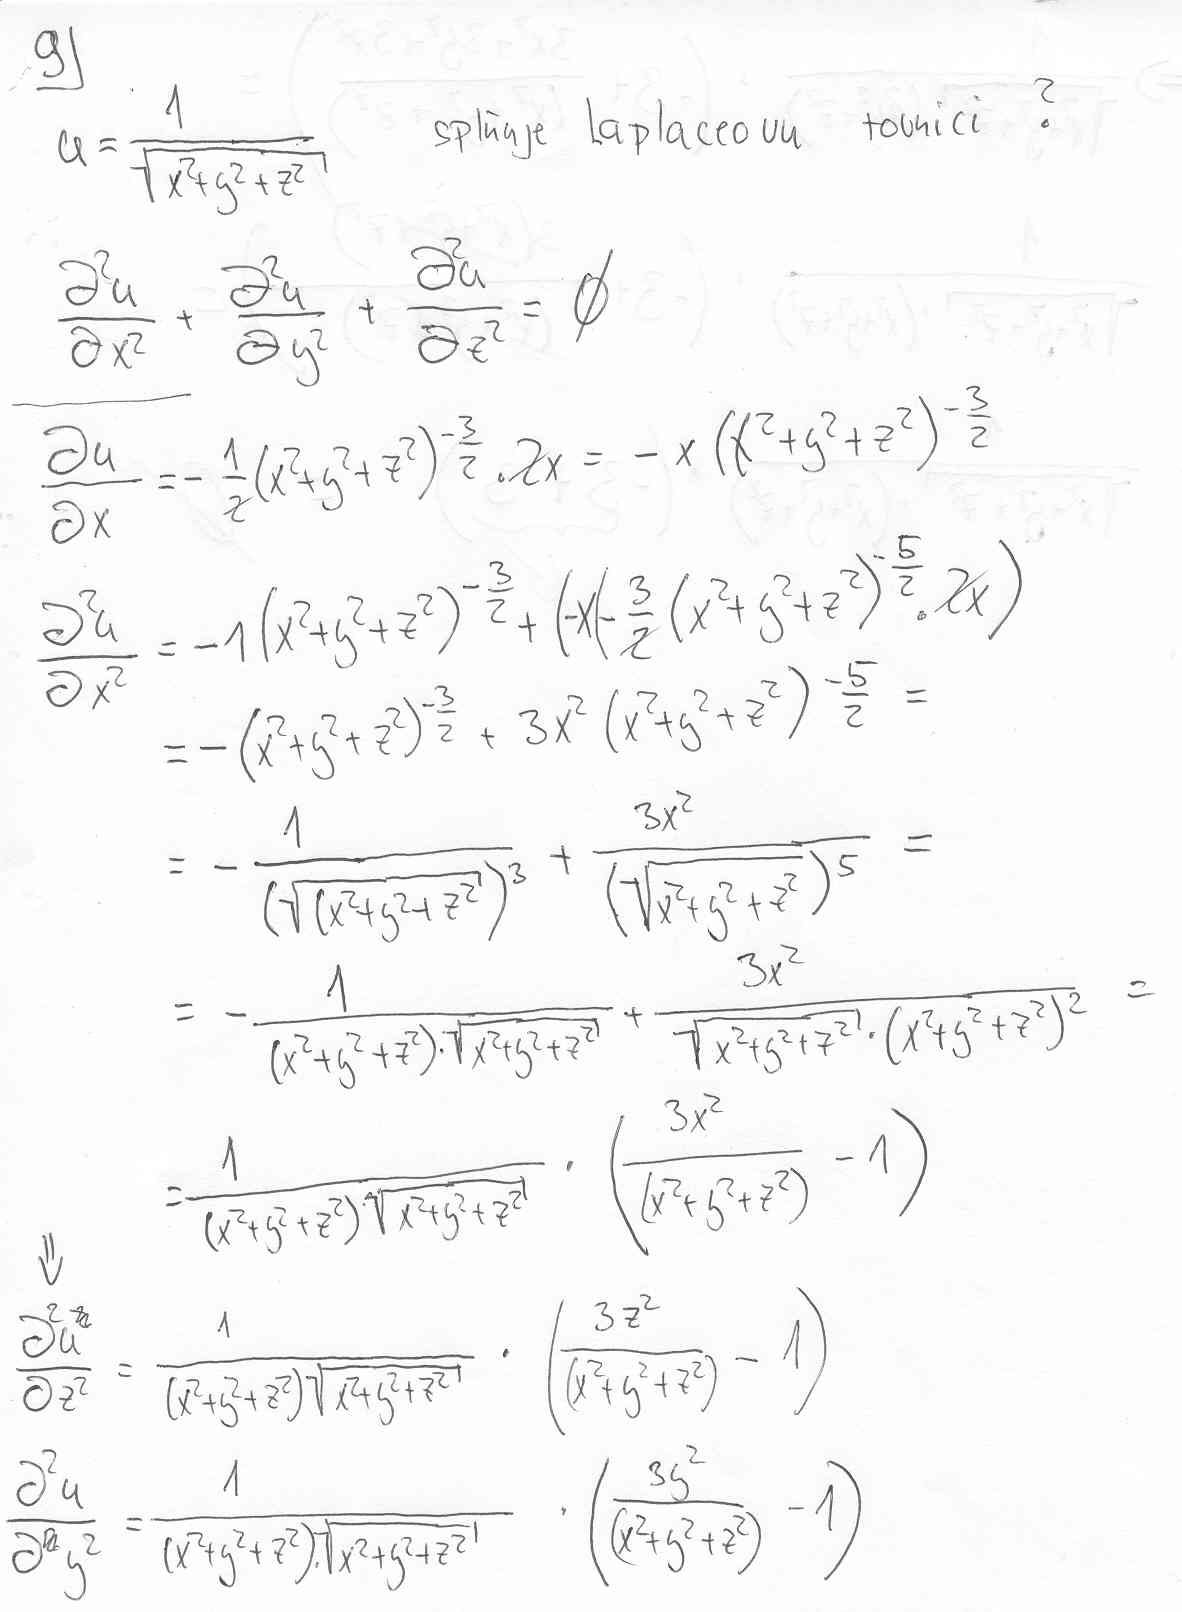 9)
u = 1/√(x²+y²+z²) splňuje Laplaceovu rovnici ?
∂²u/∂x² + ∂²u/∂y² + ∂²u/∂z² = ∅
∂u/∂x = - 1/2 (x²+y²+z²)^(-3/2) . 2x = - x (x²+y²+z²)^(-3/2)
∂²u/∂x² = -1 (x²+y²+z²)^(-3/2) + (-x(-3/2 (x²+y²+z²)^(-5/2) . 2x)
= - (x²+y²+z²)^(-3/2) + 3x² (x²+y²+z²)^(-5/2) =
= - 1/(√(x²+y²+z²))³ + 3x²/(√(x²+y²+z²))⁵ =
= - 1/((x²+y²+z²)·√(x²+y²+z²)) + 3x²/(√(x²+y²+z²)·(x²+y²+z²)²) =
= 1/((x²+y²+z²)·√(x²+y²+z²)) · (3x²/(x²+y²+z²) - 1)
⇓
∂²u/∂z² = 1/((x²+y²+z²)√(x²+y²+z²)) · (3z²/(x²+y²+z²) - 1)
∂²u/∂y² = 1/((x²+y²+z²)·√(x²+y²+z²)) · (3y²/(x²+y²+z²) - 1)